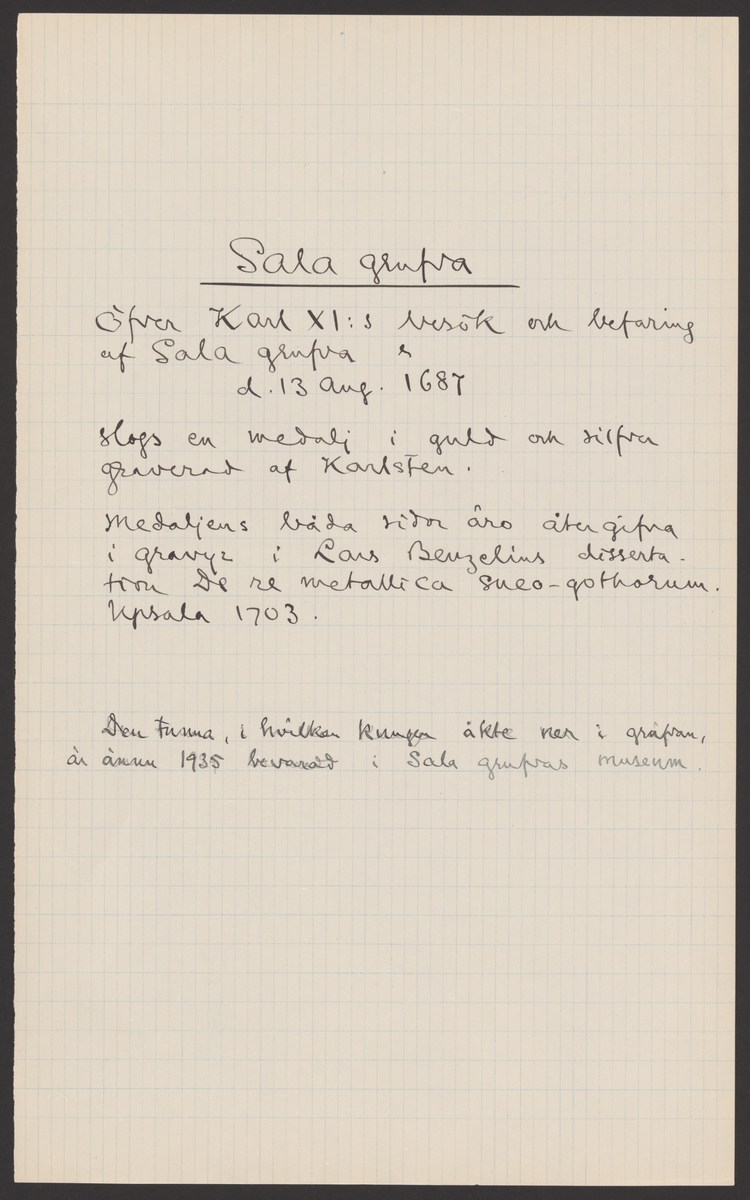 Sala grufva
Öfver Karl XI:s besök och befaring
af Sala grufva
d. 13 Aug. 1687
slogs en medalj i guld och silfver
graverad af Karlsten.
Medaljens båda sidor äro återgifna
i gravyr i Lars Benzelius disserta-
tion De re metallica sueo-gothorum.
Upsala 1703.
Den tunna, i hvilken kungen åkte ner i grufvan,
är ännu 1935 bevarad i Sala grufvas museum.